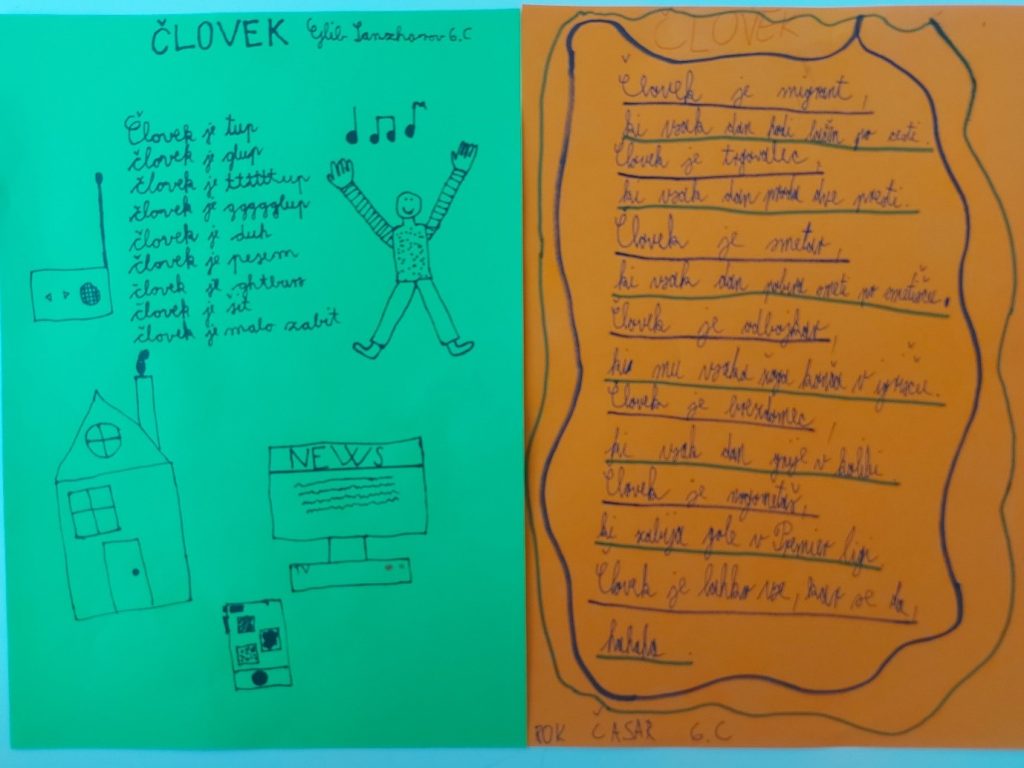 ČLOVEK Glib 6.C
Človek je tup
človek je glup
človek je ttttttup
človek je ggggglup
človek je duh
človek je pesem
človek je
človek je šit
človek je malo zabit
NEWS
TV
ČLOVEK
Človek je migrant,
ki vsak dan hodi po cesti.
Človek je trgovalec,
ki vsak dan proda dve pesti.
Človek je smetar,
ki vsak dan pobira smeti po smetišču.
Človek je odbojkar,
ki mu vsaka žoga konča v igrišču.
Človek je brezdomec,
ki vsak dan v
Človek je nogometaš,
ki zabija gole v Premier ligi
Človek je lahko vse, kar se da,
hahaha
ROK ČASAR 6.C